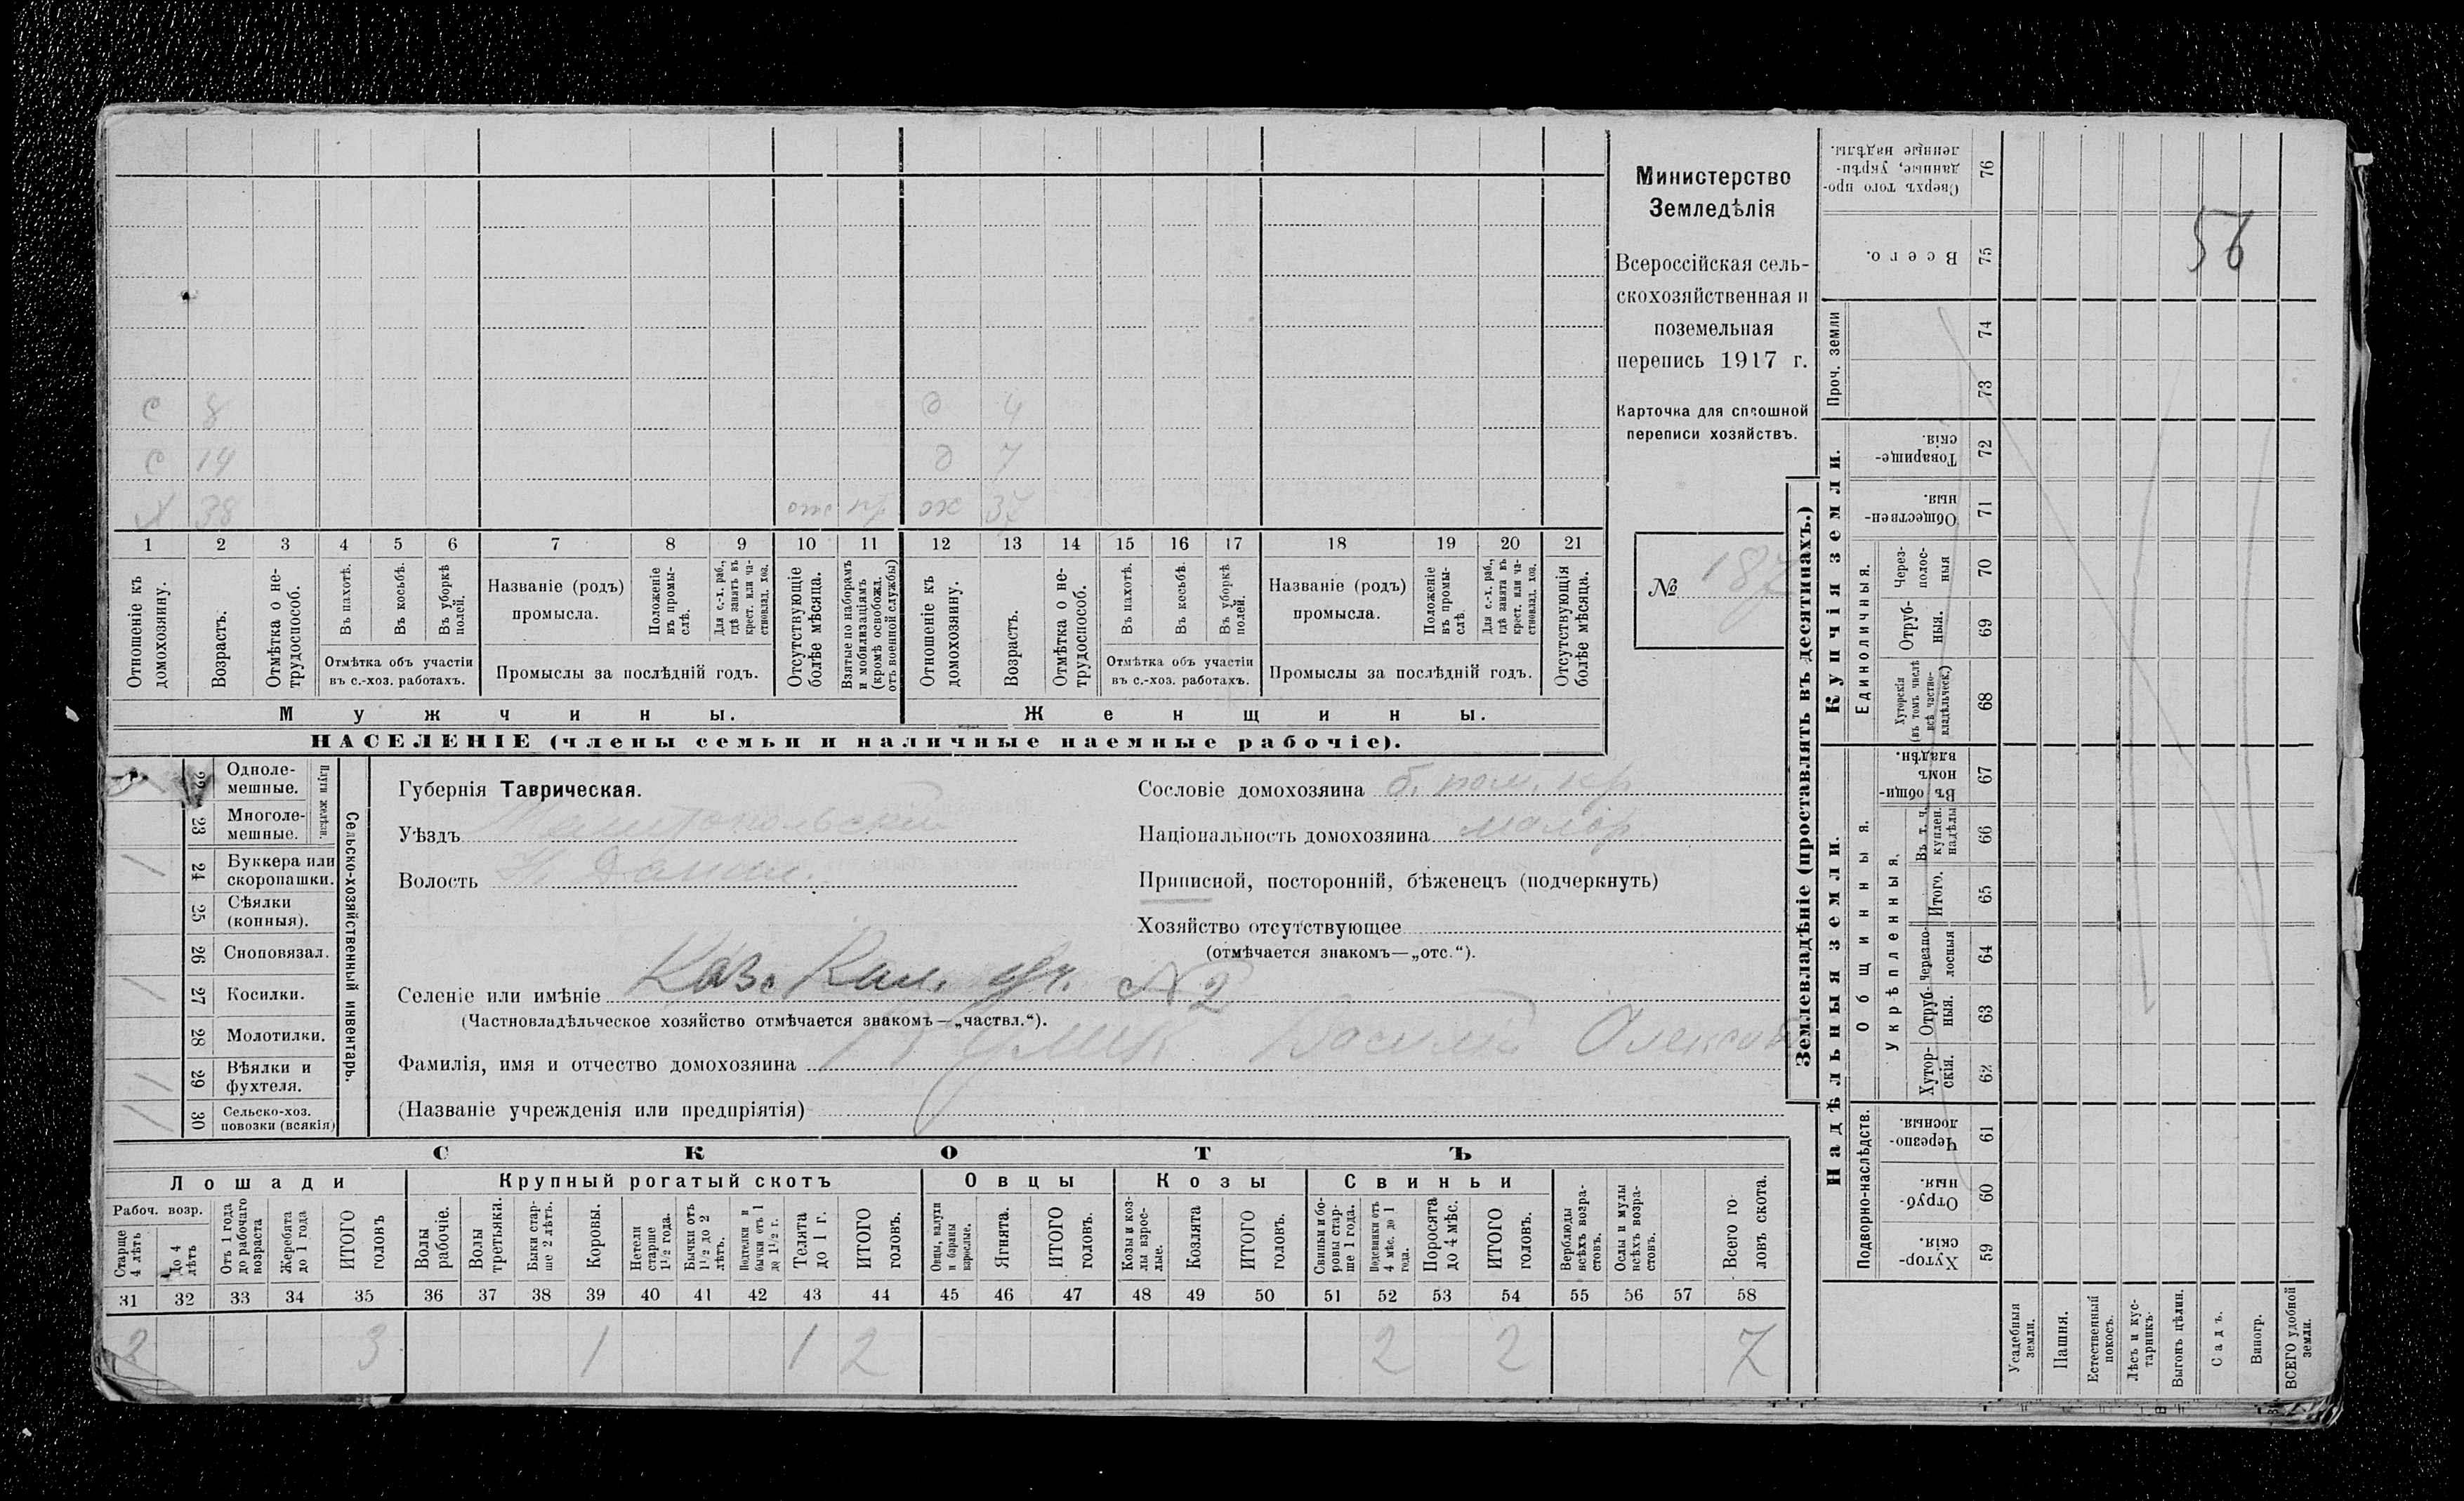 Министерство
Земледѣлія
Всероссійская сель-
скохозяйственная и
поземельная
перепись 1917 г.
Карточка для сплошной
переписи хозяйствъ.
№ 187
с 8 д 4
с 14 д 7
х 38 отс ж 37
1 2 3 4 5 6 7 8 9 10 11 12 13 14 15 16 17 18 19 20 21
Отношеніе къ домохозяину.
Возрастъ.
Отмѣтка о не-трудоспособ.
Въ пахотѣ.
Въ косьбѣ.
Въ уборкѣ полей.
Отмѣтка объ участіи
въ с.-хоз. работахъ.
Названіе (родъ)
промысла.
Положеніе въ промы-слѣ.
Для с.-х. раб., гдѣ занятъ въ крест. или ча-стновлад. хоз.
Промыслы за послѣдній годъ.
Отсутствующіе болѣе мѣсяца.
Взятые по наборамъ и мобилизаціямъ (кромѣ освобожд. отъ военной службы)
Отношеніе къ домохозяину.
Возрастъ.
Отмѣтка о не-трудоспособ.
Въ пахотѣ.
Въ косьбѣ.
Въ уборкѣ полей.
Отмѣтка объ участіи
въ с.-хоз. работахъ.
Названіе (родъ)
промысла.
Положеніе въ промы-слѣ.
Для с.-х. раб., гдѣ занята въ крест. или ча-стновлад. хоз.
Промыслы за послѣдній годъ.
Отсутствующія болѣе мѣсяца.
Мужчины.
Женщины.
НАСЕЛЕНІЕ (члены семьи и наличные наемные рабочіе).
Сельско-хозяйственный инвентарь.
Плуги желѣзн.
22 Одноле-мешные.
23 Многоле-мешные.
24 Буккера или скоропашки. 1
25 Сѣялки (конныя).
26 Сноповязал.
27 Косилки. 1
28 Молотилки.
29 Вѣялки и фухтеля. 1
30 Сельско-хоз. повозки (всякія) 1
Губернія Таврическая.
Уѣздъ Мелитопольскій
Волость
Селеніе или имѣніе Каз. Кал. уч. №2
(Частновладѣльческое хозяйство отмѣчается знакомъ—„частвл.“).
Фамилія, имя и отчество домохозяина Василій
(Названіе учрежденія или предпріятія)
Сословіе домохозяина б. пом. кр
Національность домохозяина малор.
Приписной, посторонній, бѣженецъ (подчеркнуть)
Хозяйство отсутствующее
(отмѣчается знакомъ—„отс.“).
СКОТЪ
Лошади
Крупный рогатый скотъ
Овцы
Козы
Свиньи
Рабоч. возр.
Старше 4 лѣтъ
До 4 лѣтъ
Отъ 1 года до рабочаго возраста
Жеребята до 1 года
ИТОГО головъ
Волы рабочіе.
Волы третьяка.
Быки стар-ше 2 лѣтъ.
Коровы.
Нетели старше 1½ года.
Бычки отъ 1½ до 2 лѣтъ.
Подтелки и бычки отъ 1 до 1½ г.
Телята до 1 г.
ИТОГО головъ.
Овцы, валухи и бараны взрослые.
Ягнята.
ИТОГО головъ.
Козы и коз-лы взрос-лые.
Козлята
ИТОГО головъ.
Свиньи и бо-ровы стар-ше 1 года.
Подсвинки отъ 4 мѣс. до 1 года.
Поросята до 4 мѣс.
ИТОГО головъ.
Верблюды всѣхъ возра-стовъ.
Ослы и мулы всѣхъ возра-стовъ.
Всего го-ловъ скота.
31 32 33 34 35 36 37 38 39 40 41 42 43 44 45 46 47 48 49 50 51 52 53 54 55 56 57 58
2 3 1 1 2 2 2 7
Землевладѣніе (проставлять въ десятинахъ.)
Надѣльныя земли.
Купчія земли.
Проч. земли
Подворно-наслѣдств.
Общинныя.
Укрѣпленныя.
Единоличныя.
Сверхъ того про-данные, укрѣп-ленные надѣлы. 76
Всего. 75
56
74
73
Товарище-скія. 72
Обществен-ныя. 71
Через-полос-ныя 70
Отруб-ныя. 69
Хуторскія (въ томъ числѣ всѣ частно-владѣльческ.) 68
Въ общин-номъ владѣн. 67
Въ т. ч. куплен. надѣлы 66
Итого. 65
Черезпо-лосныя 64
Отруб-ныя. 63
Хутор-скія. 62
Черезпо-лосныя. 61
Отруб-ныя. 60
Хутор-скія. 59
Усадебныя земли.
Пашня.
Естественный покосъ.
Лѣсъ и кус-тарникъ.
Выгонъ цѣлин.
Садъ.
Виногр.
ВСЕГО удобной земли.